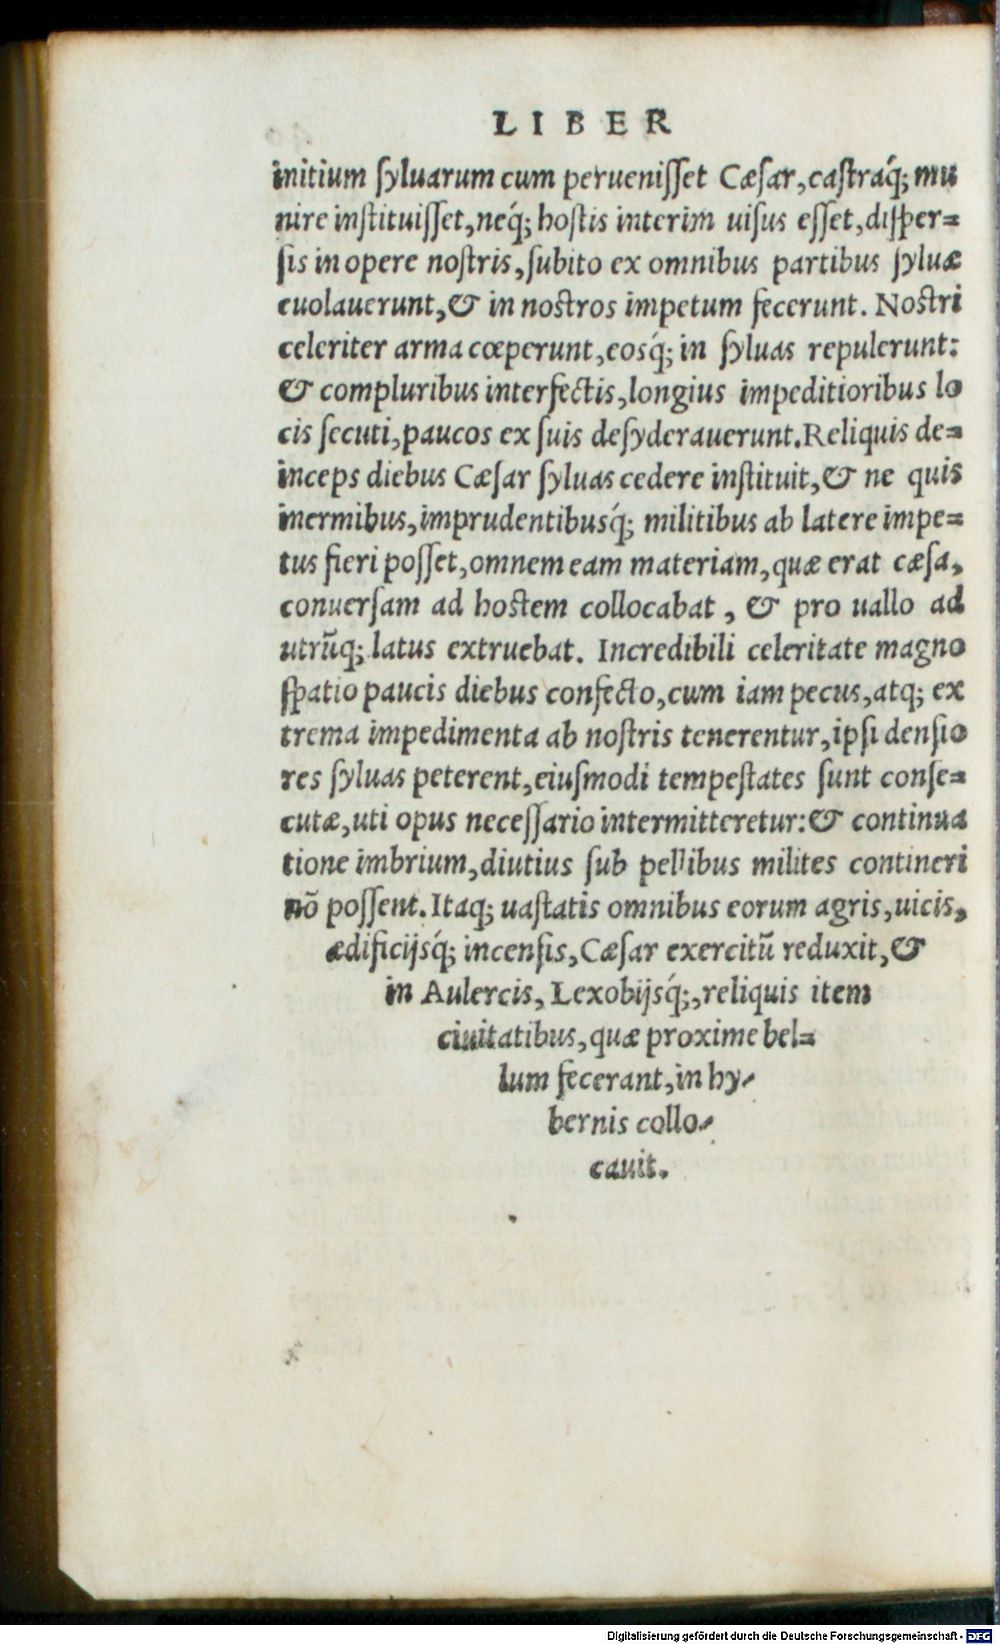 LIBER
initium ſyluarum cum perueniſſet Cæſar, caſtraq́; mu
nire inſtituiſſet, neq́; hoſtis interim uiſus eſſet, diſper=
ſis in opere noſtris, ſubito ex omnibus partibus ſyluæ
euolauerunt, & in noſtros impetum fecerunt. Noſtri
celeriter arma cœperunt, eosq́; in ſyluas repulerunt:
& compluribus interfectis, longius impeditioribus lo
cis ſecuti, paucos ex ſuis deſyderauerunt. Reliquis de=
inceps diebus Cæſar ſyluas cedere inſtituit, & ne quis
inermibus, imprudentibusq́; militibus ab latere impe=
tus fieri poſſet, omnem eam materiam, quæ erat cæſa,
conuerſam ad hoſtem collocabat, & pro uallo ad
utrũq; latus extruebat. Incredibili celeritate magno
ſpatio paucis diebus confecto, cum iam pecus, atq; ex
trema impedimenta ab noſtris tenerentur, ipſi denſio
res ſyluas peterent, eiuſmodi tempeſtates ſunt conſe=
cutæ, uti opus neceſſario intermitteretur: & continua
tione imbrium, diutius ſub pellibus milites contineri
nõ poſſent. Itaq; uaſtatis omnibus eorum agris, uicis,
ædificijsq́; incenſis, Cæſar exercitũ reduxit, &
in Aulercis, Lexobijsq́;, reliquis item
ciuitatibus, quæ proxime bel=
lum fecerant, in hy-
bernis collo-
cauit.
Digitalisierung gefördert durch die Deutsche Forschungsgemeinschaft - DFG